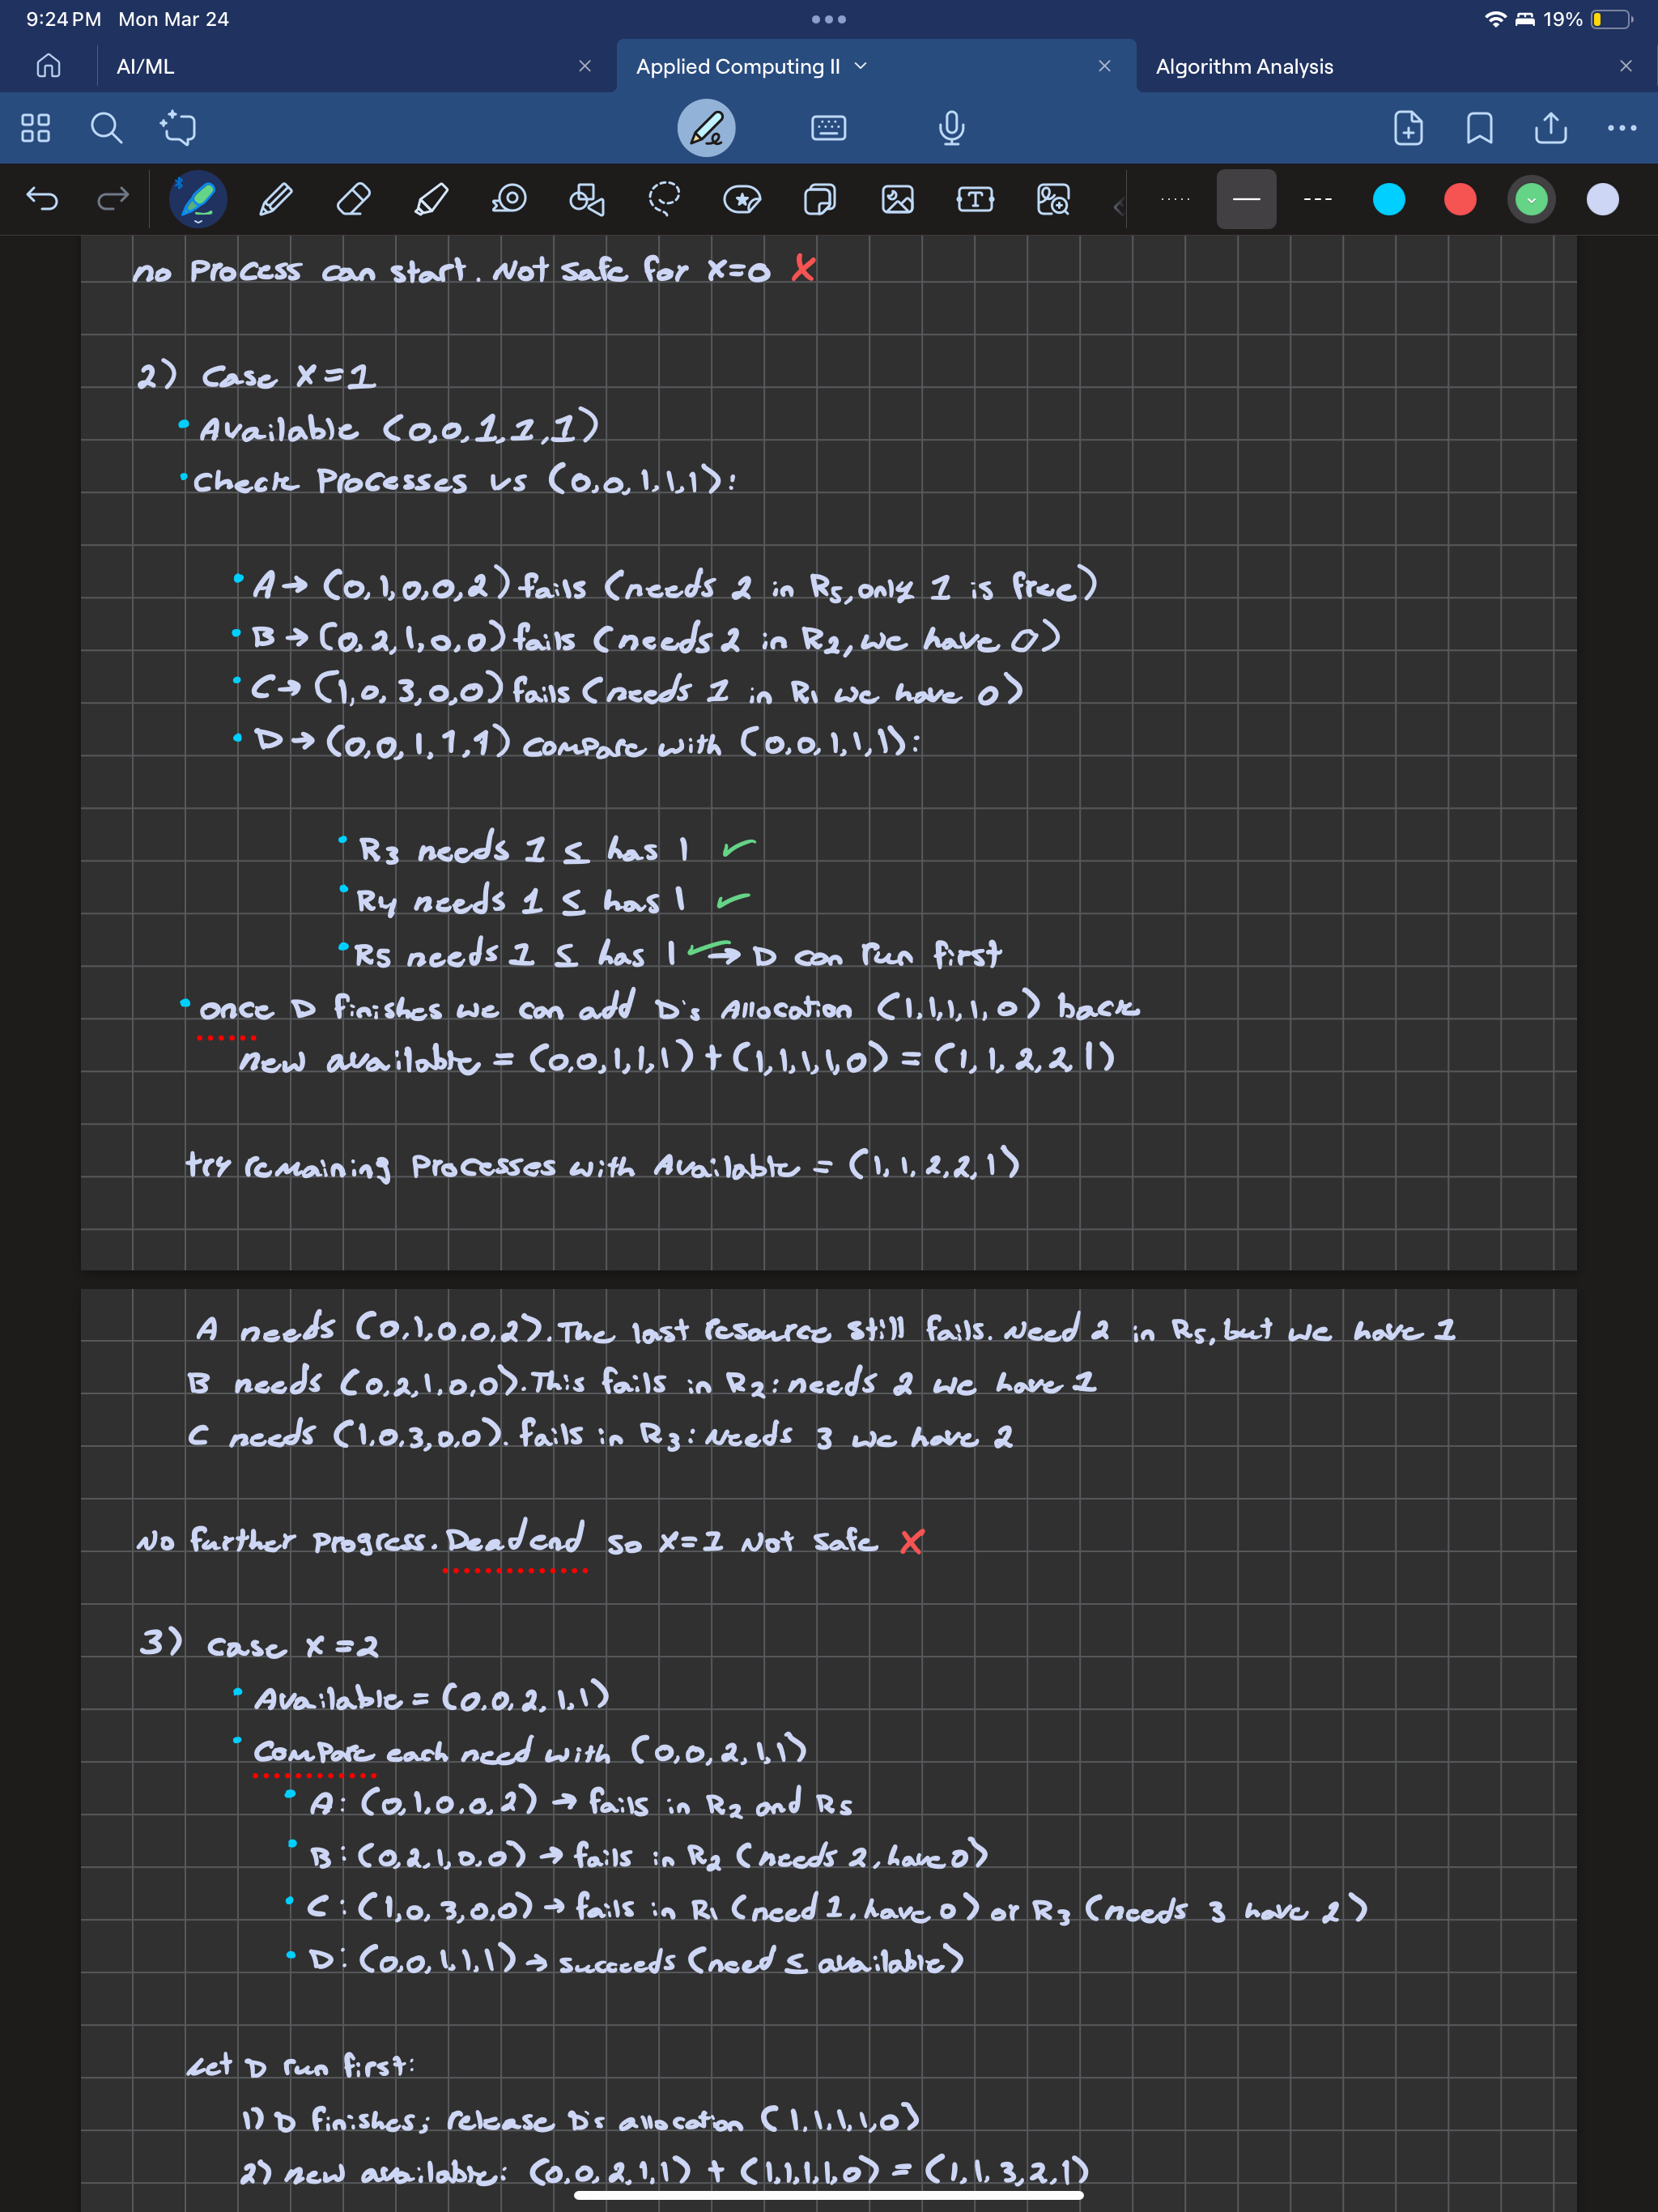 9:24 PM Mon Mar 24
19%
AI/ML
Applied Computing II
Algorithm Analysis
no Process can start. Not safe for X=0 ✗
2) Case X=1
• Available (0,0,1,1,1)
• Check Processes vs (0,0,1,1,1):
• A → (0,1,0,0,2) fails (needs 2 in R5, only 1 is free)
• B → (0,2,1,0,0) fails (needs 2 in R2, we have 0)
• C → (1,0,3,0,0) fails (needs 1 in R1 we have 0)
• D → (0,0,1,1,1) compare with (0,0,1,1,1):
• R3 needs 1 ≤ has 1 ✓
• R4 needs 1 ≤ has 1 ✓
• R5 needs 1 ≤ has 1 ✓ → D can run first
• once D finishes we can add D's Allocation (1,1,1,1,0) back
new available = (0,0,1,1,1) + (1,1,1,1,0) = (1,1,2,2,1)
try remaining Processes with Available = (1,1,2,2,1)
A needs (0,1,0,0,2). The last resource still fails. Need 2 in R5, but we have 1
B needs (0,2,1,0,0). This fails in R2: needs 2 we have 1
C needs (1,0,3,0,0). fails in R3: Needs 3 we have 2
No further Progress. Dead end so X=1 Not Safe ✗
3) Case X=2
• Available = (0,0,2,1,1)
• Compare each need with (0,0,2,1,1)
• A: (0,1,0,0,2) → fails in R2 and R5
• B: (0,2,1,0,0) → fails in R2 (needs 2, have 0)
• C: (1,0,3,0,0) → fails in R1 (need 1, have 0) or R3 (needs 3 have 2)
• D: (0,0,1,1,1) → succeeds (need ≤ available)
Let D run first:
1) D finishes; release D's allocation (1,1,1,1,0)
2) new available: (0,0,2,1,1) + (1,1,1,1,0) = (1,1,3,2,1)